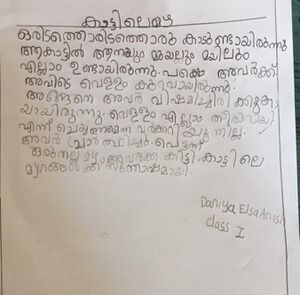 കാട്ടിലെമഴ
ഒരിടത്തൊരിടത്തൊരു കാടുണ്ടായിരുന്നു
ആകാട്ടിൽ ആനയും മുയലും മയിലും
എല്ലാം ഉണ്ടായിരുന്നു. പക്ഷെ അവർക്ക്
അവിടെ വെള്ളം കുറവായിരുന്നു.
അങ്ങനെ അവർ വിഷമിച്ചിരിക്കുക
യായിരുന്നു. വെള്ളം എല്ലാം തീരാറായി
എന്ത് ചെയ്യണമെന്നവർക്കറിയില്ല.
അവർ പ്രാർത്ഥിച്ചു. പെട്ടന്ന്
ഒരു നല്ല മഴ അവർക്ക് കിട്ടി. കാട്ടിലെ
മൃഗങ്ങൾക്ക് സന്തോഷമായി.
Daniya Elsa Anish
class I